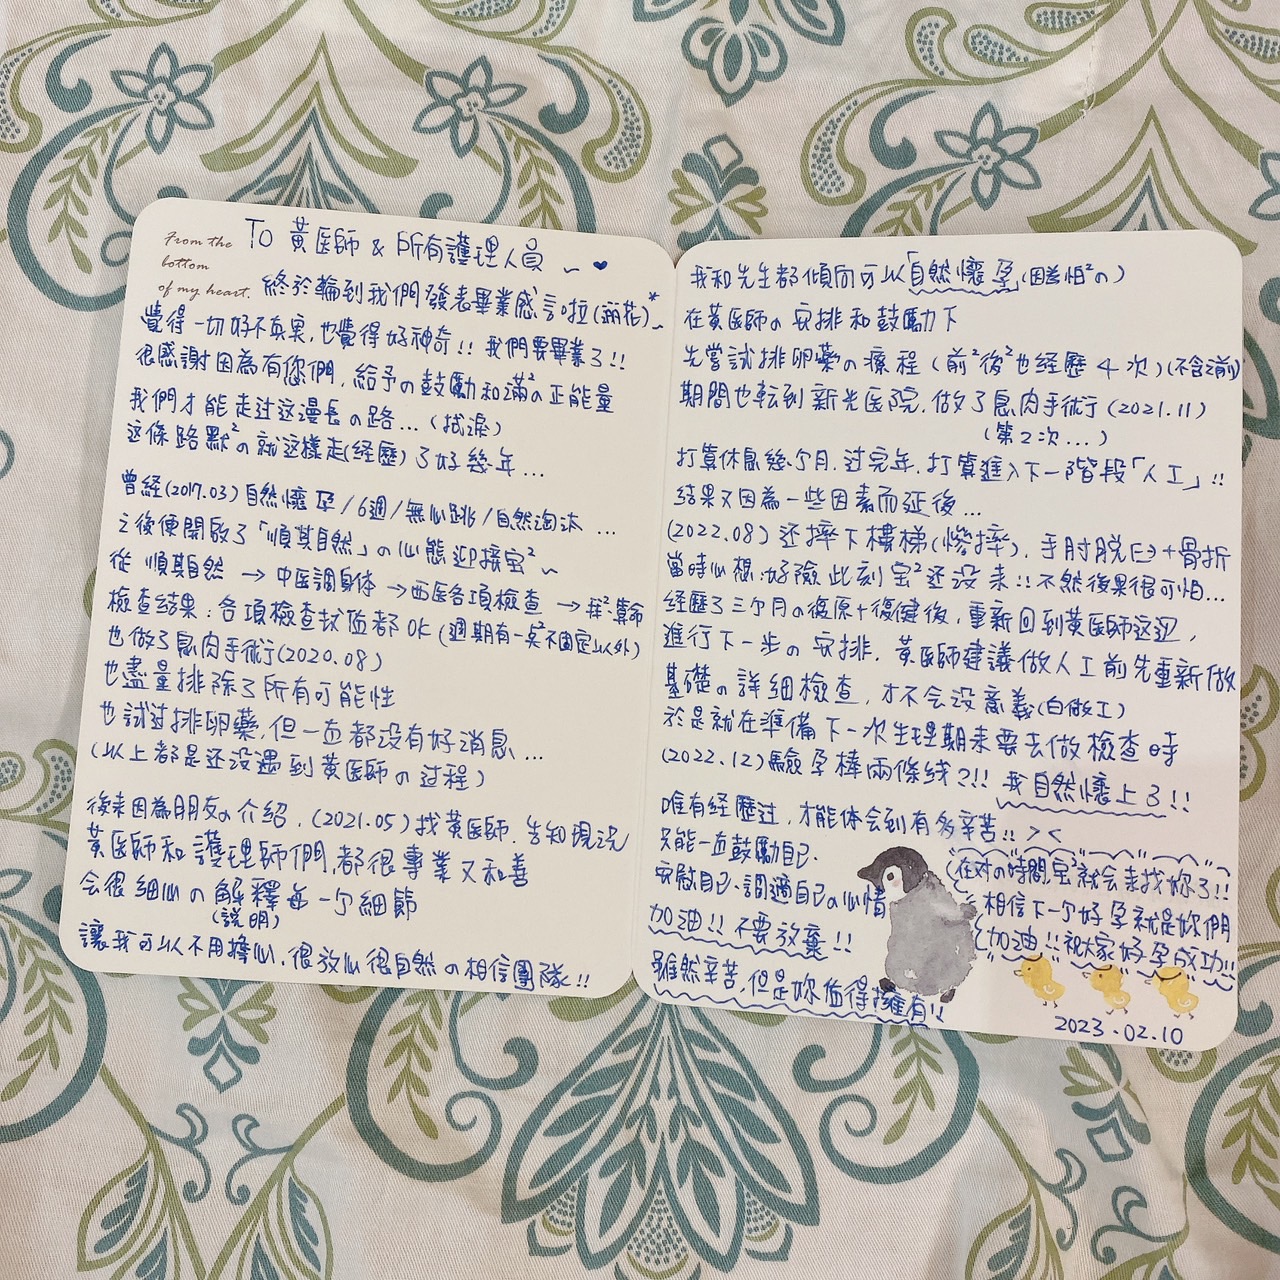 From the
bottom
of my heart.
To 黃医師 & 所有護理人員 ~ ♥
終於輪到我們發表畢業感言啦(灑花)*~
覺得一切好不真実,也覺得好神奇!! 我們要畢業了!!
很感謝因為有您們,給予の鼓勵和滿²の正能量
我們才能走过这漫長の路...(拭淚)
这條路默²の就这樣走(経歷)了好幾年...
曾経(2017.03)自然懷孕/6週/無心跳/自然淘汰...
之後便開啟了「順其自然」の心態迎接宝²~
從 順其自然 → 中医調身体 → 西医各項檢查 → 拜²算命
檢查結果:各項檢查找值都OK(週期有一点²不固定以外)
也做了息肉手術(2020.08)
也盡量排除了所有可能性
也試过排卵藥,但一直都没有好消息...
(以上都是还没遇到黃医師の过程)
後来因為朋友の介紹,(2021.05)找黃医師,告知現況
黃医師和護理師們,都很專業又和善
会很細心の解釋每一个細節
(說明)
讓我可以不用擔心,很放心很自然の相信團隊!!
我和先生都傾向可以「自然懷孕」(因為怕²の)
在黃医師の安排和鼓勵下
先嘗試排卵藥の療程(前²後²也経歷4次)(不含之前)
期間也転到新光医院,做了息肉手術(2021.11)
(第2次...)
打算休息幾个月,过完年,打算進入下一階段「人工」!!
結果又因為一些因素而延後...
(2022.08)还摔下樓梯(慘摔),手肘脱臼+骨折
當時心想:好險此刻宝²还没来!!不然後果很可怕...
経歷了三个月の復原+復健後,重新回到黃医師这边,
進行下一步の安排,黃医師建議做人工前先重新做
基礎の詳細檢查,才不会没意義(白做工)
於是就在準備下一次生理期来要去做檢查時
(2022.12)驗孕棒兩條线?!! 我自然懷上了!!
唯有経歷过,才能体会到有多辛苦!! ><
只能一直鼓勵自己、
安慰自己、調適自己の心情
加油!! 不要放棄!!
雖然辛苦,但是妳值得擁有!!
在対の時間,宝²就会来找妳了!!
相信下一个好孕就是妳們
加油!!祝大家好孕成功!!
2023.02.10